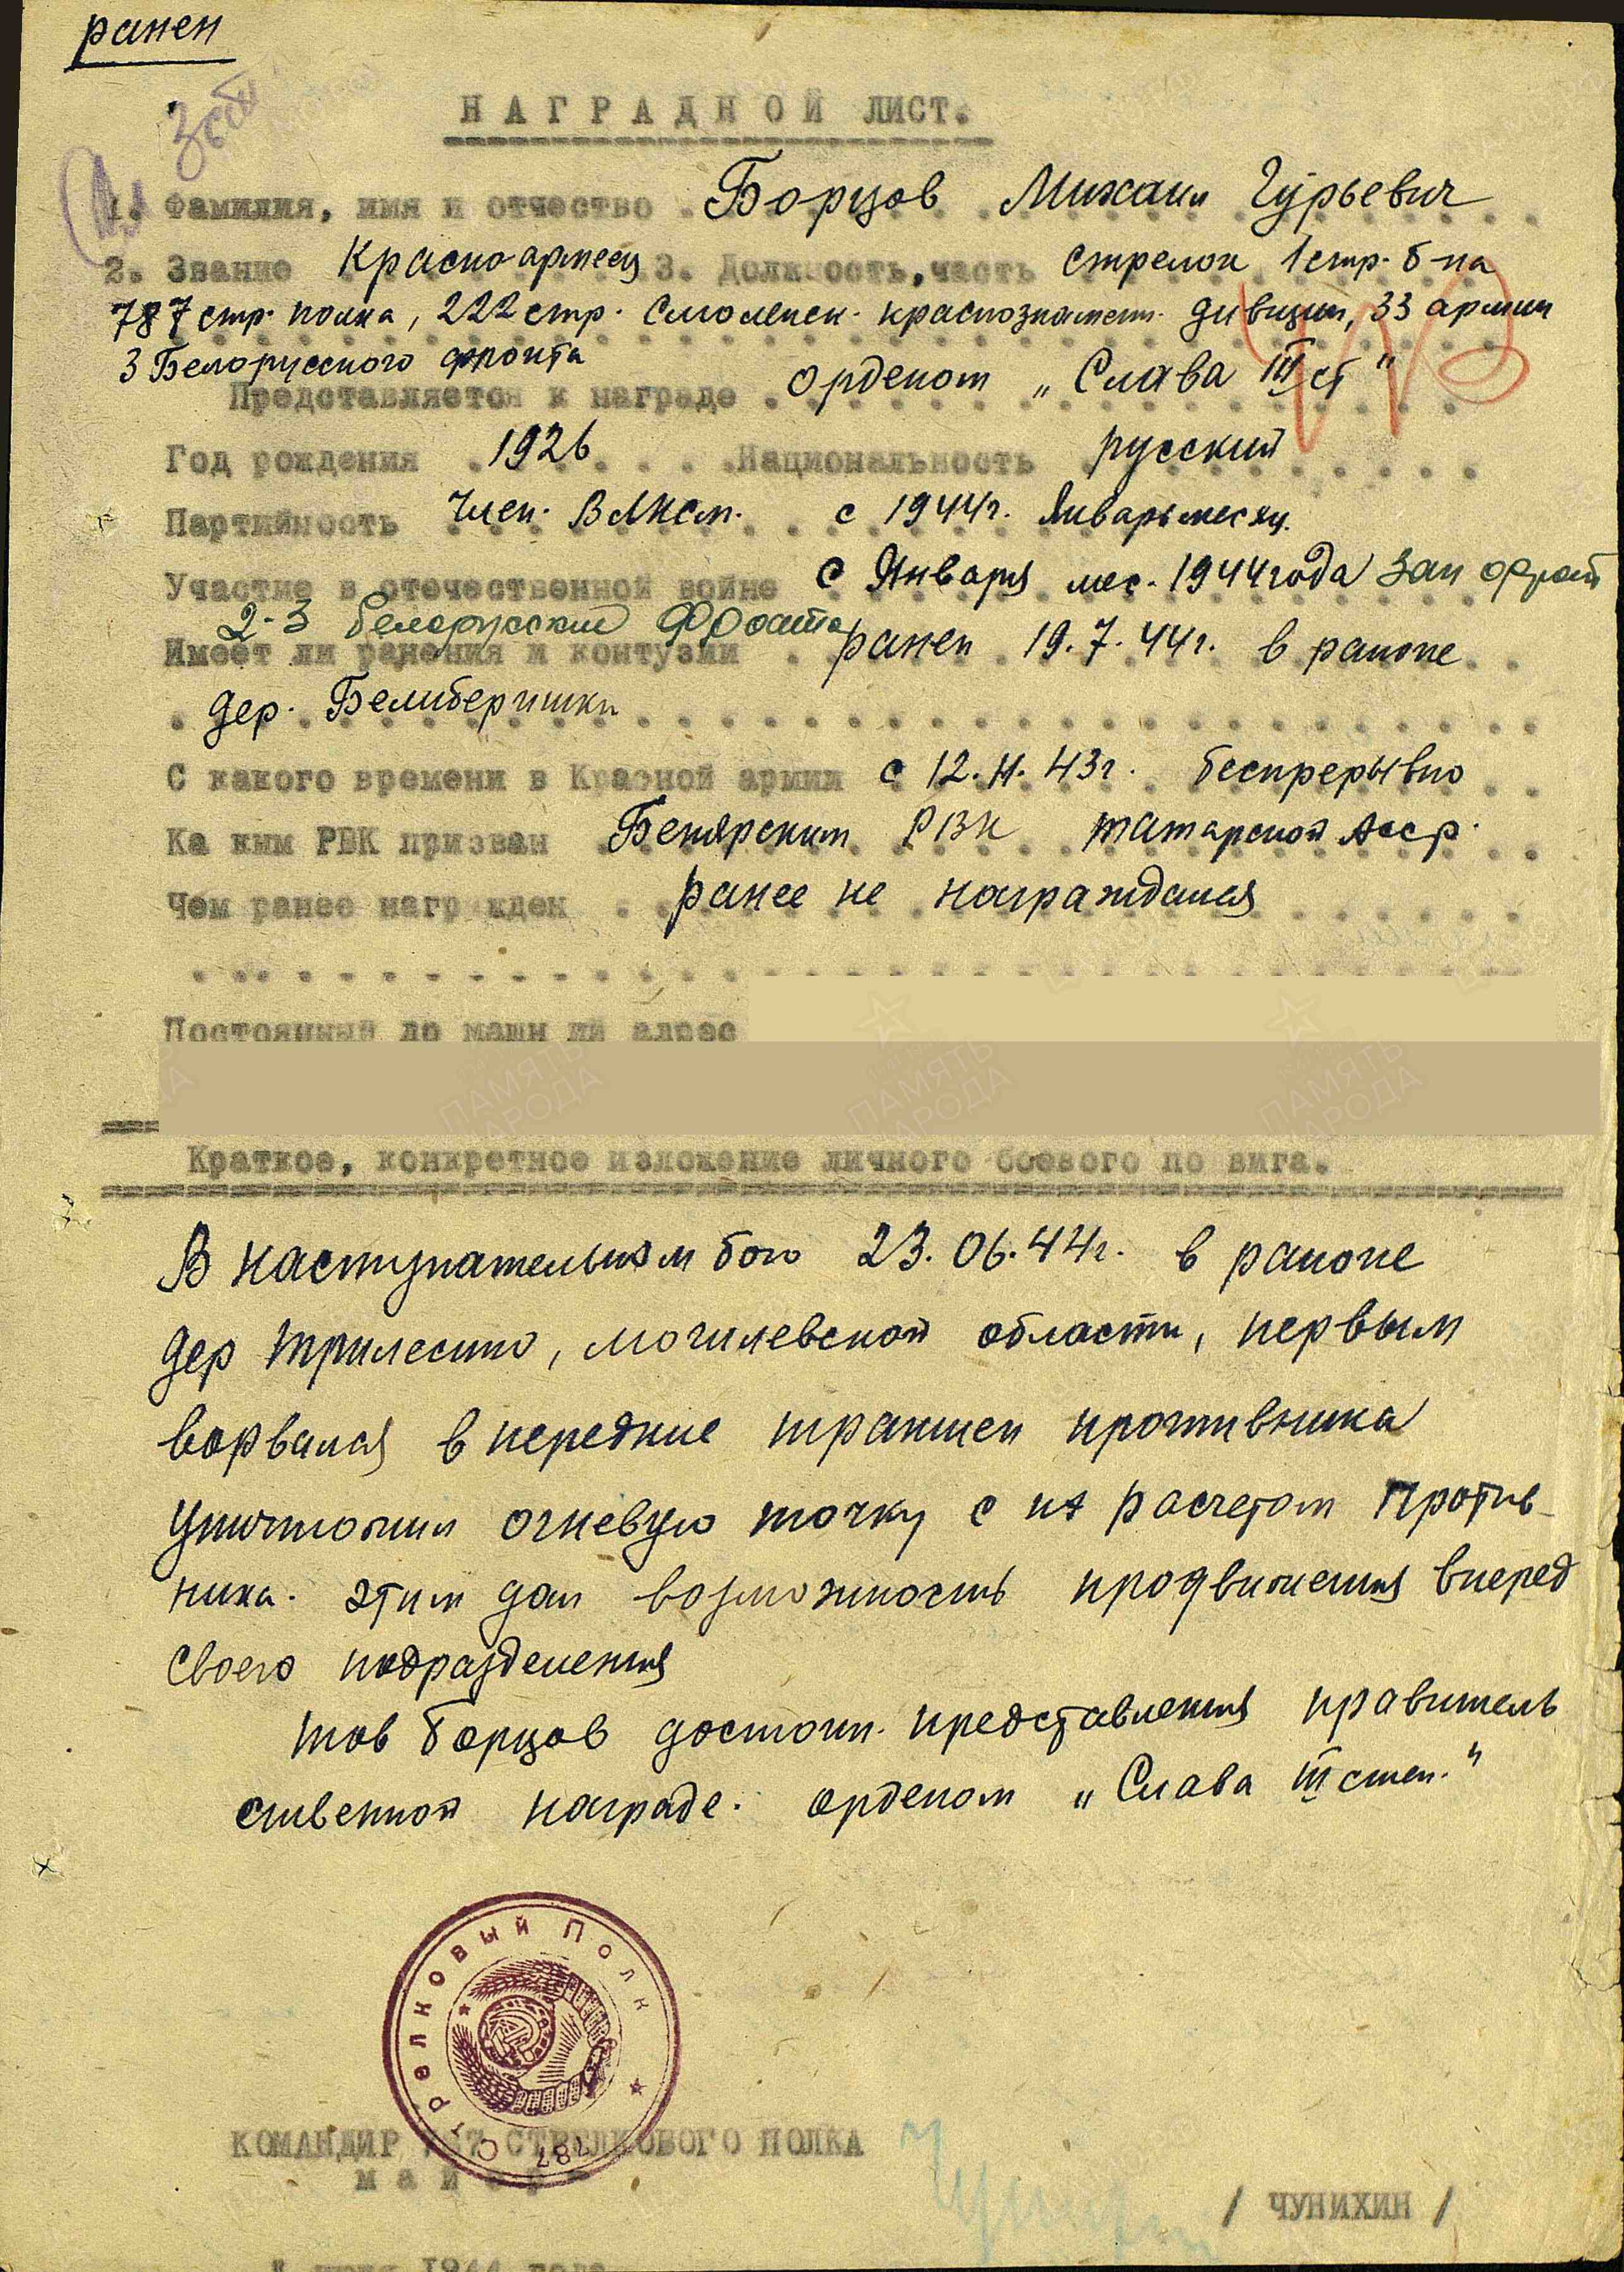 ранен
НАГРАДНОЙ ЛИСТ.
1. Фамилия, имя и отчество Борцов Михаил Гурьевич
2. Звание Красноармеец 3. Должность, часть стрелок 1 стр. б-на
787 стр. полка, 222 стр. Смоленск. краснознамен. дивизии, 33 армии
3 Белорусского фронта
Представляется к награде орденом „Слава III ст"
Год рождения 1926 Национальность русский
Партийность Член. ВЛКСМ. с 1944г. Январь месяц.
Участие в отечественной войне с Января мес. 1944 года Зап фронт
2-3 Белорусский фронта
Имеет ли ранения и контузии ранен 19.7.44г. в районе
дер. Белиберишки
С какого времени в Красной армии с 12.11.43г. беспрерывно
Ка ким РВК призван РВК Татарской Асср.
Чем ранее награжден ранее не награждался
Постоянный до машн ий адрес
Краткое, конкретное изложение личного боевого по вига.
В наступательном бою 23.06.44г. в районе
дер Трилесино, могилевской области, первым
ворвался в передние траншеи противника
уничтожил огневую точку с их расчетом против-
ника. этим дал возможность продвижения вперед
своего подразделения
тов Борцов достоин. представления правитель
ственной награде. орденом „Слава III степ."
Стрелковый Полк
787
КОМАНДИР 787 СТРЕЛКОВОГО ПОЛКА
майор
/ ЧУНИХИН /
1944 года
ПАМЯТЬ НАРОДА
ПАМЯТЬ НАРОДА
ПАМЯТЬ НАРОДА